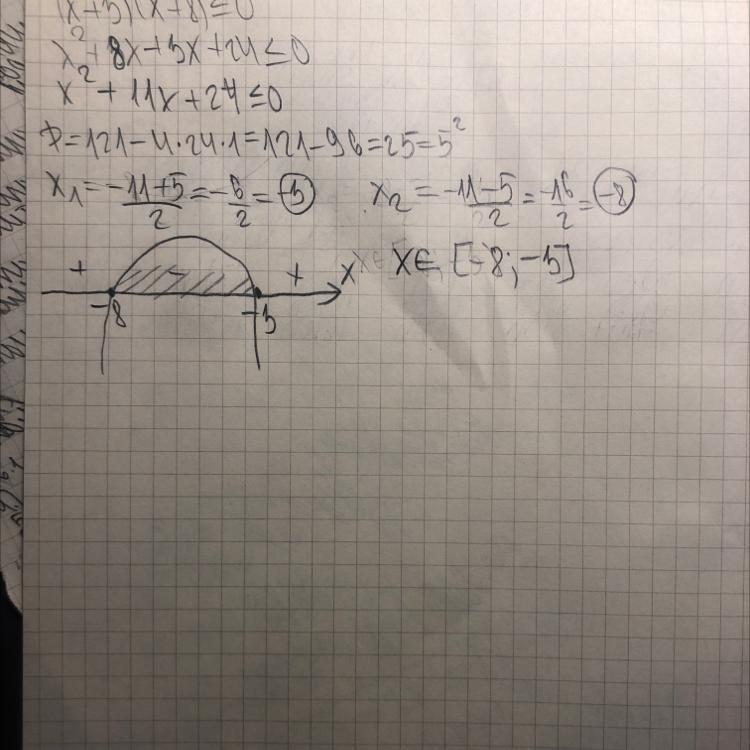 (x+3)(x+8)≤0
x²+8x+3x+24≤0
x²+11x+24≤0
D=121-4·24·1=121-96=25=5²
x₁=-11+5/2=-6/2=-3 x₂=-11-5/2=-16/2=-8
+ - + x x∈ [-8;-3]
-8 -3